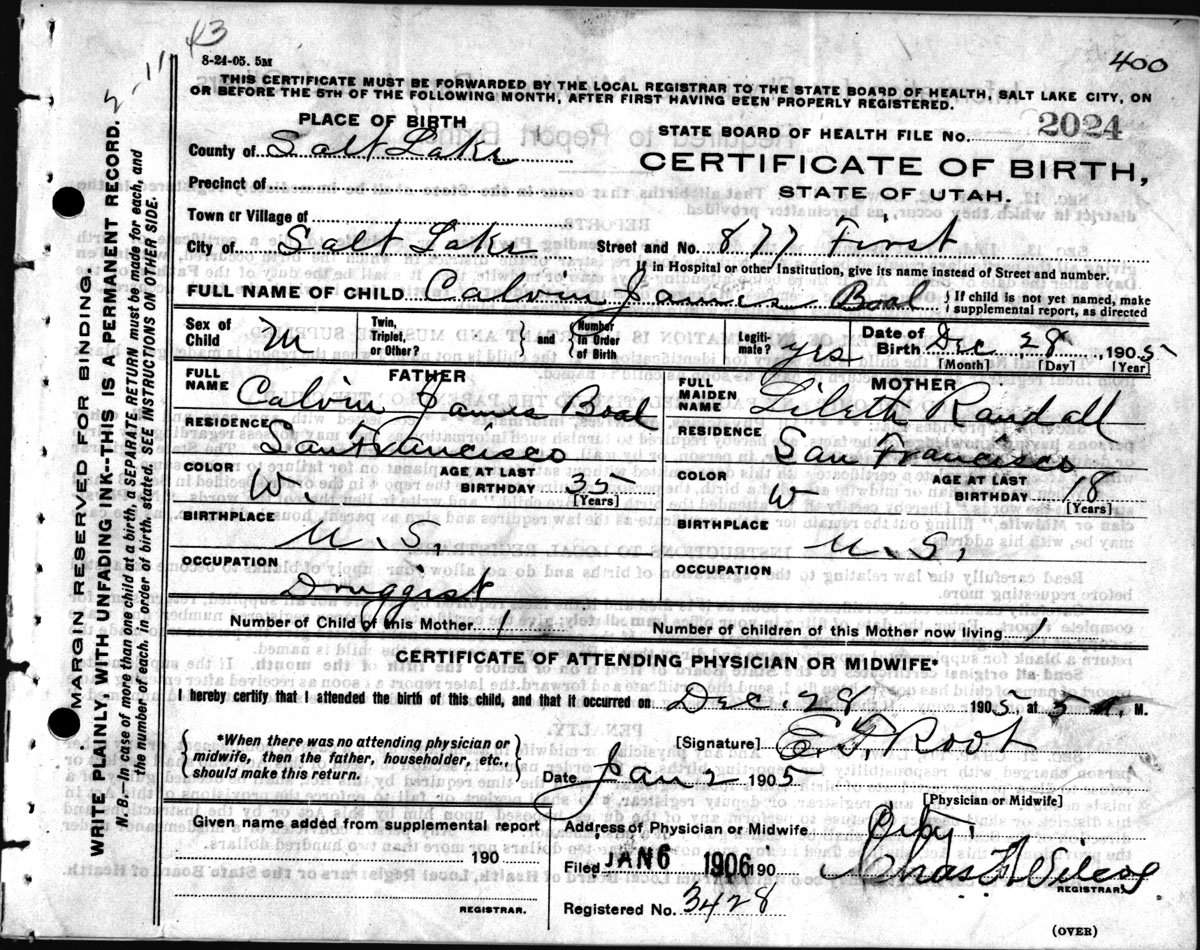 43
8-24-05. 5M
400
THIS CERTIFICATE MUST BE FORWARDED BY THE LOCAL REGISTRAR TO THE STATE BOARD OF HEALTH, SALT LAKE CITY, ON
OR BEFORE THE 5TH OF THE FOLLOWING MONTH, AFTER FIRST HAVING BEEN PROPERLY REGISTERED.
PLACE OF BIRTH
STATE BOARD OF HEALTH FILE No. 2024
County of Salt Lake
CERTIFICATE OF BIRTH,
Precinct of
STATE OF UTAH.
Town or Village of
City of Salt Lake Street and No. 877 First
If in Hospital or other Institution, give its name instead of Street and number.
FULL NAME OF CHILD Calvin James Boal } If child is not yet named, make
supplemental report, as directed
Sex of Child M Twin, Triplet, or Other? } and { Number in Order of Birth Legiti-mate? yes Date of Birth Dec 28, 1905
[Month] [Day] [Year]
FATHER
FULL NAME Calvin James Boal
RESIDENCE San Francisco
COLOR W. AGE AT LAST BIRTHDAY 35
[Years]
BIRTHPLACE U. S.
OCCUPATION Druggist
MOTHER
FULL MAIDEN NAME Lileth Randall
RESIDENCE San Francisco
COLOR W AGE AT LAST BIRTHDAY 18
[Years]
BIRTHPLACE U. S.
OCCUPATION
Number of Child of this Mother 1 Number of children of this Mother now living 1
CERTIFICATE OF ATTENDING PHYSICIAN OR MIDWIFE*
I hereby certify that I attended the birth of this child, and that it occurred on Dec. 28 1905, at 5 A. M.
{ *When there was no attending physician or
midwife, then the father, householder, etc.,
should make this return. }
[Signature] E. F. Root
Date Jan 2 1905
[Physician or Midwife]
Given name added from supplemental report
190
REGISTRAR.
Address of Physician or Midwife City
Filed JAN 6 1906 190
Chas F. Wilcox
REGISTRAR.
Registered No. 3428
(OVER)
MARGIN RESERVED FOR BINDING.
WRITE PLAINLY, WITH UNFADING INK--THIS IS A PERMANENT RECORD.
N. B.—In case of more than one child at a birth, a SEPARATE RETURN must be made for each, and
the number of each, in order of birth, stated. SEE INSTRUCTIONS ON OTHER SIDE.